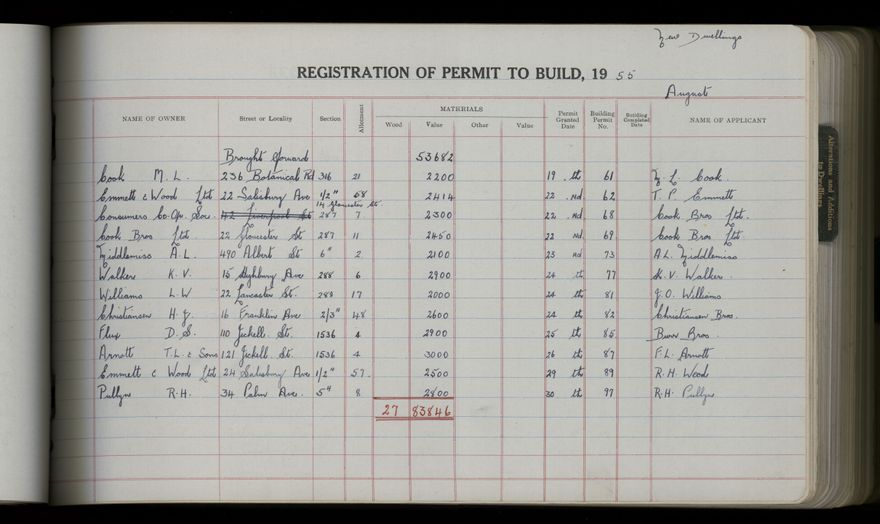 New Dwellings
REGISTRATION OF PERMIT TO BUILD, 1955
August
NAME OF OWNER Street or Locality Section Allotment MATERIALS Wood Value Other Value Permit Granted Date Building Permit No. Building Completed Date NAME OF APPLICANT
Brought forward 53682
Cook M. L. 236 Botanical Rd 316 21 2200 19 th 61 M. L. Cook.
Emmett & Wood Ltd 22 Salisbury Ave 1/2" 58 2414 22 nd 62 T. P. Emmett
14 Gloucester St.
Consumers Co. Op. Soc. 42 Liverpool St 287 7 2300 22 nd 68 Cook Bros Ltd.
Cook Bros Ltd. 22 Gloucester St 287 11 2450 22 nd 69 Cook Bros Ltd
Middlemiss A. L. 490 Albert St 6" 2 2100 23 rd 73 A. L. Middlemiss
Walker K. V. 15 Highbury Ave 288 6 2900 24 th 77 K. V. Walker.
Williams L. W 22 Lancaster St. 288 17 2000 24 th 81 J. O. Williams
Christiansen H. J. 16 Franklin Ave 2/3" 48 2600 24 th 82 Christiansen Bros.
Flux D. S. 110 Jickell St. 1536 4 2900 25 th 85 Burr Bros.
Arnott T. L. & Sons 121 Jickell St. 1536 4 3000 26 th 87 F. L. Arnott
Emmett & Wood Ltd 24 Salisbury Ave 1/2" 57 2500 29 th 89 R. H. Wood
Pullyn R. H. 34 Palm Ave. 5" 8 2800 30 th 97 R. H. Pullyn
27 83846
Alterations and Additions to Dwellings